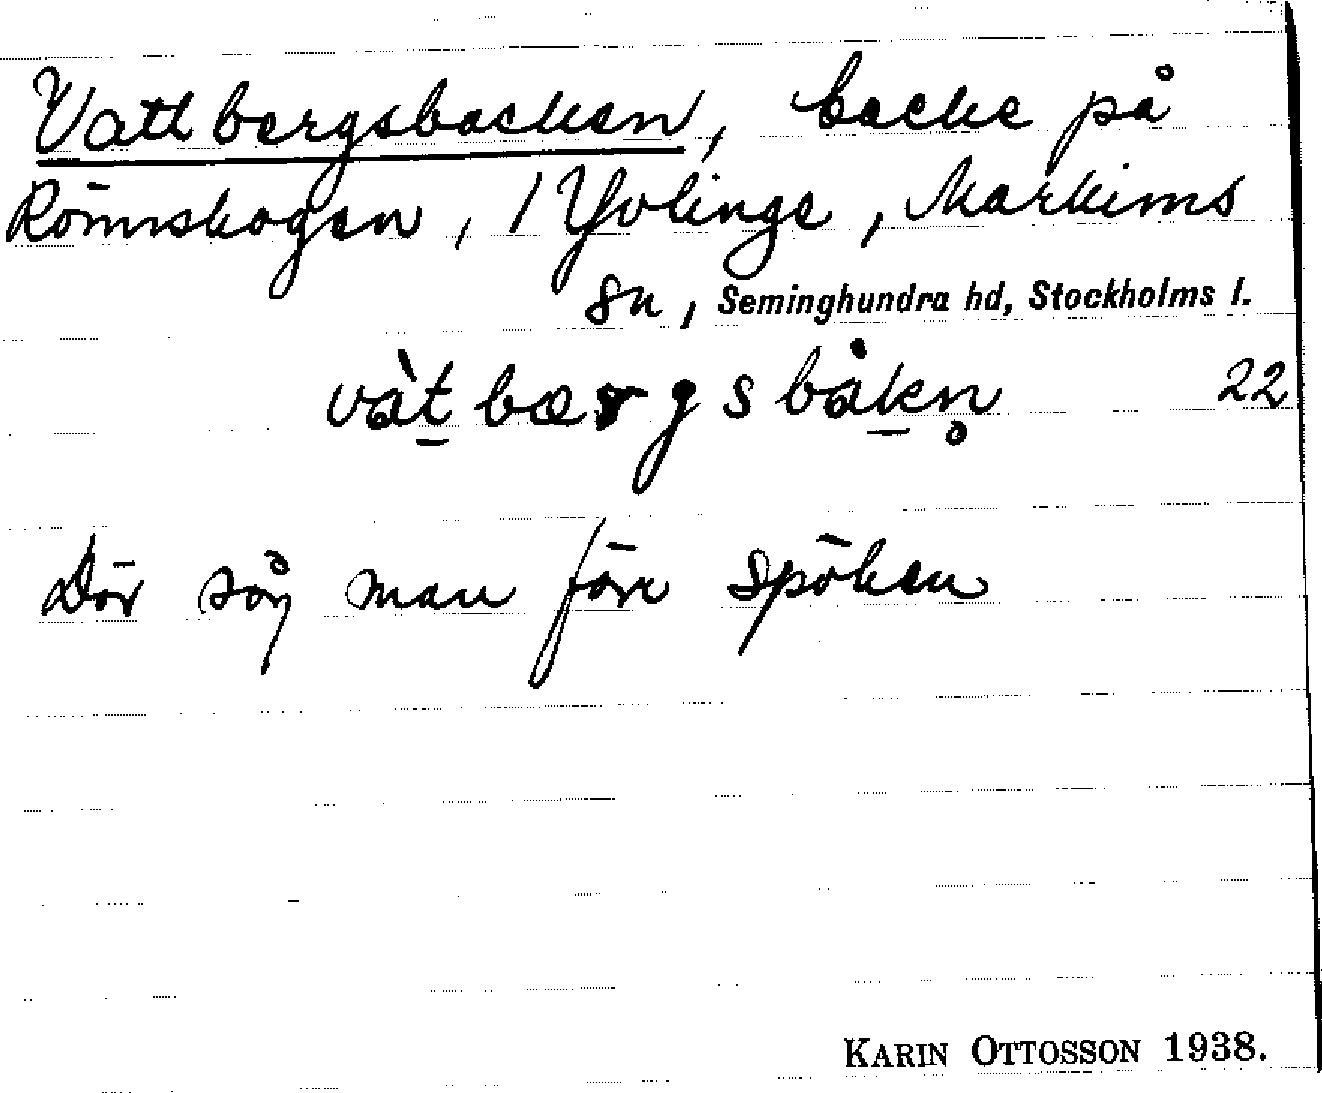 Vattbergsbacken, backe på
Rönnskogen, 1 Yvlinge, Markims
sn, Seminghundra hd, Stockholms l.
vàt̲bærgsbàk̲n̥ 22
Där såg man förr spöken
KARIN OTTOSSON 1938.